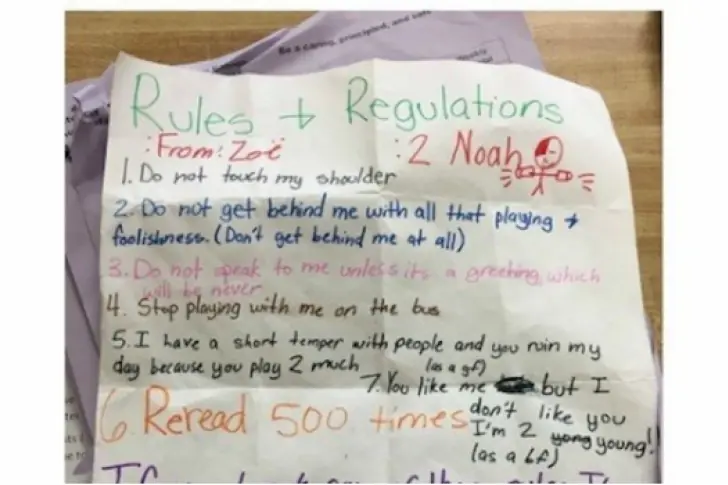 Be a caring, principled, and safe
Rules + Regulations
:From: Zoë :2 Noah
1. Do not touch my shoulder
2. Do not get behind me with all that playing +
foolishness. (Don't get behind me at all)
3. Do not speak to me unless its a greeting, which
will be never
4. Stop playing with me on the bus
5. I have a short temper with people and you ruin my
day because you play 2 much
6. Reread 500 times
7. You like me (as a gf) but I
don't like you
I'm 2 yong young!!
(as a bf)